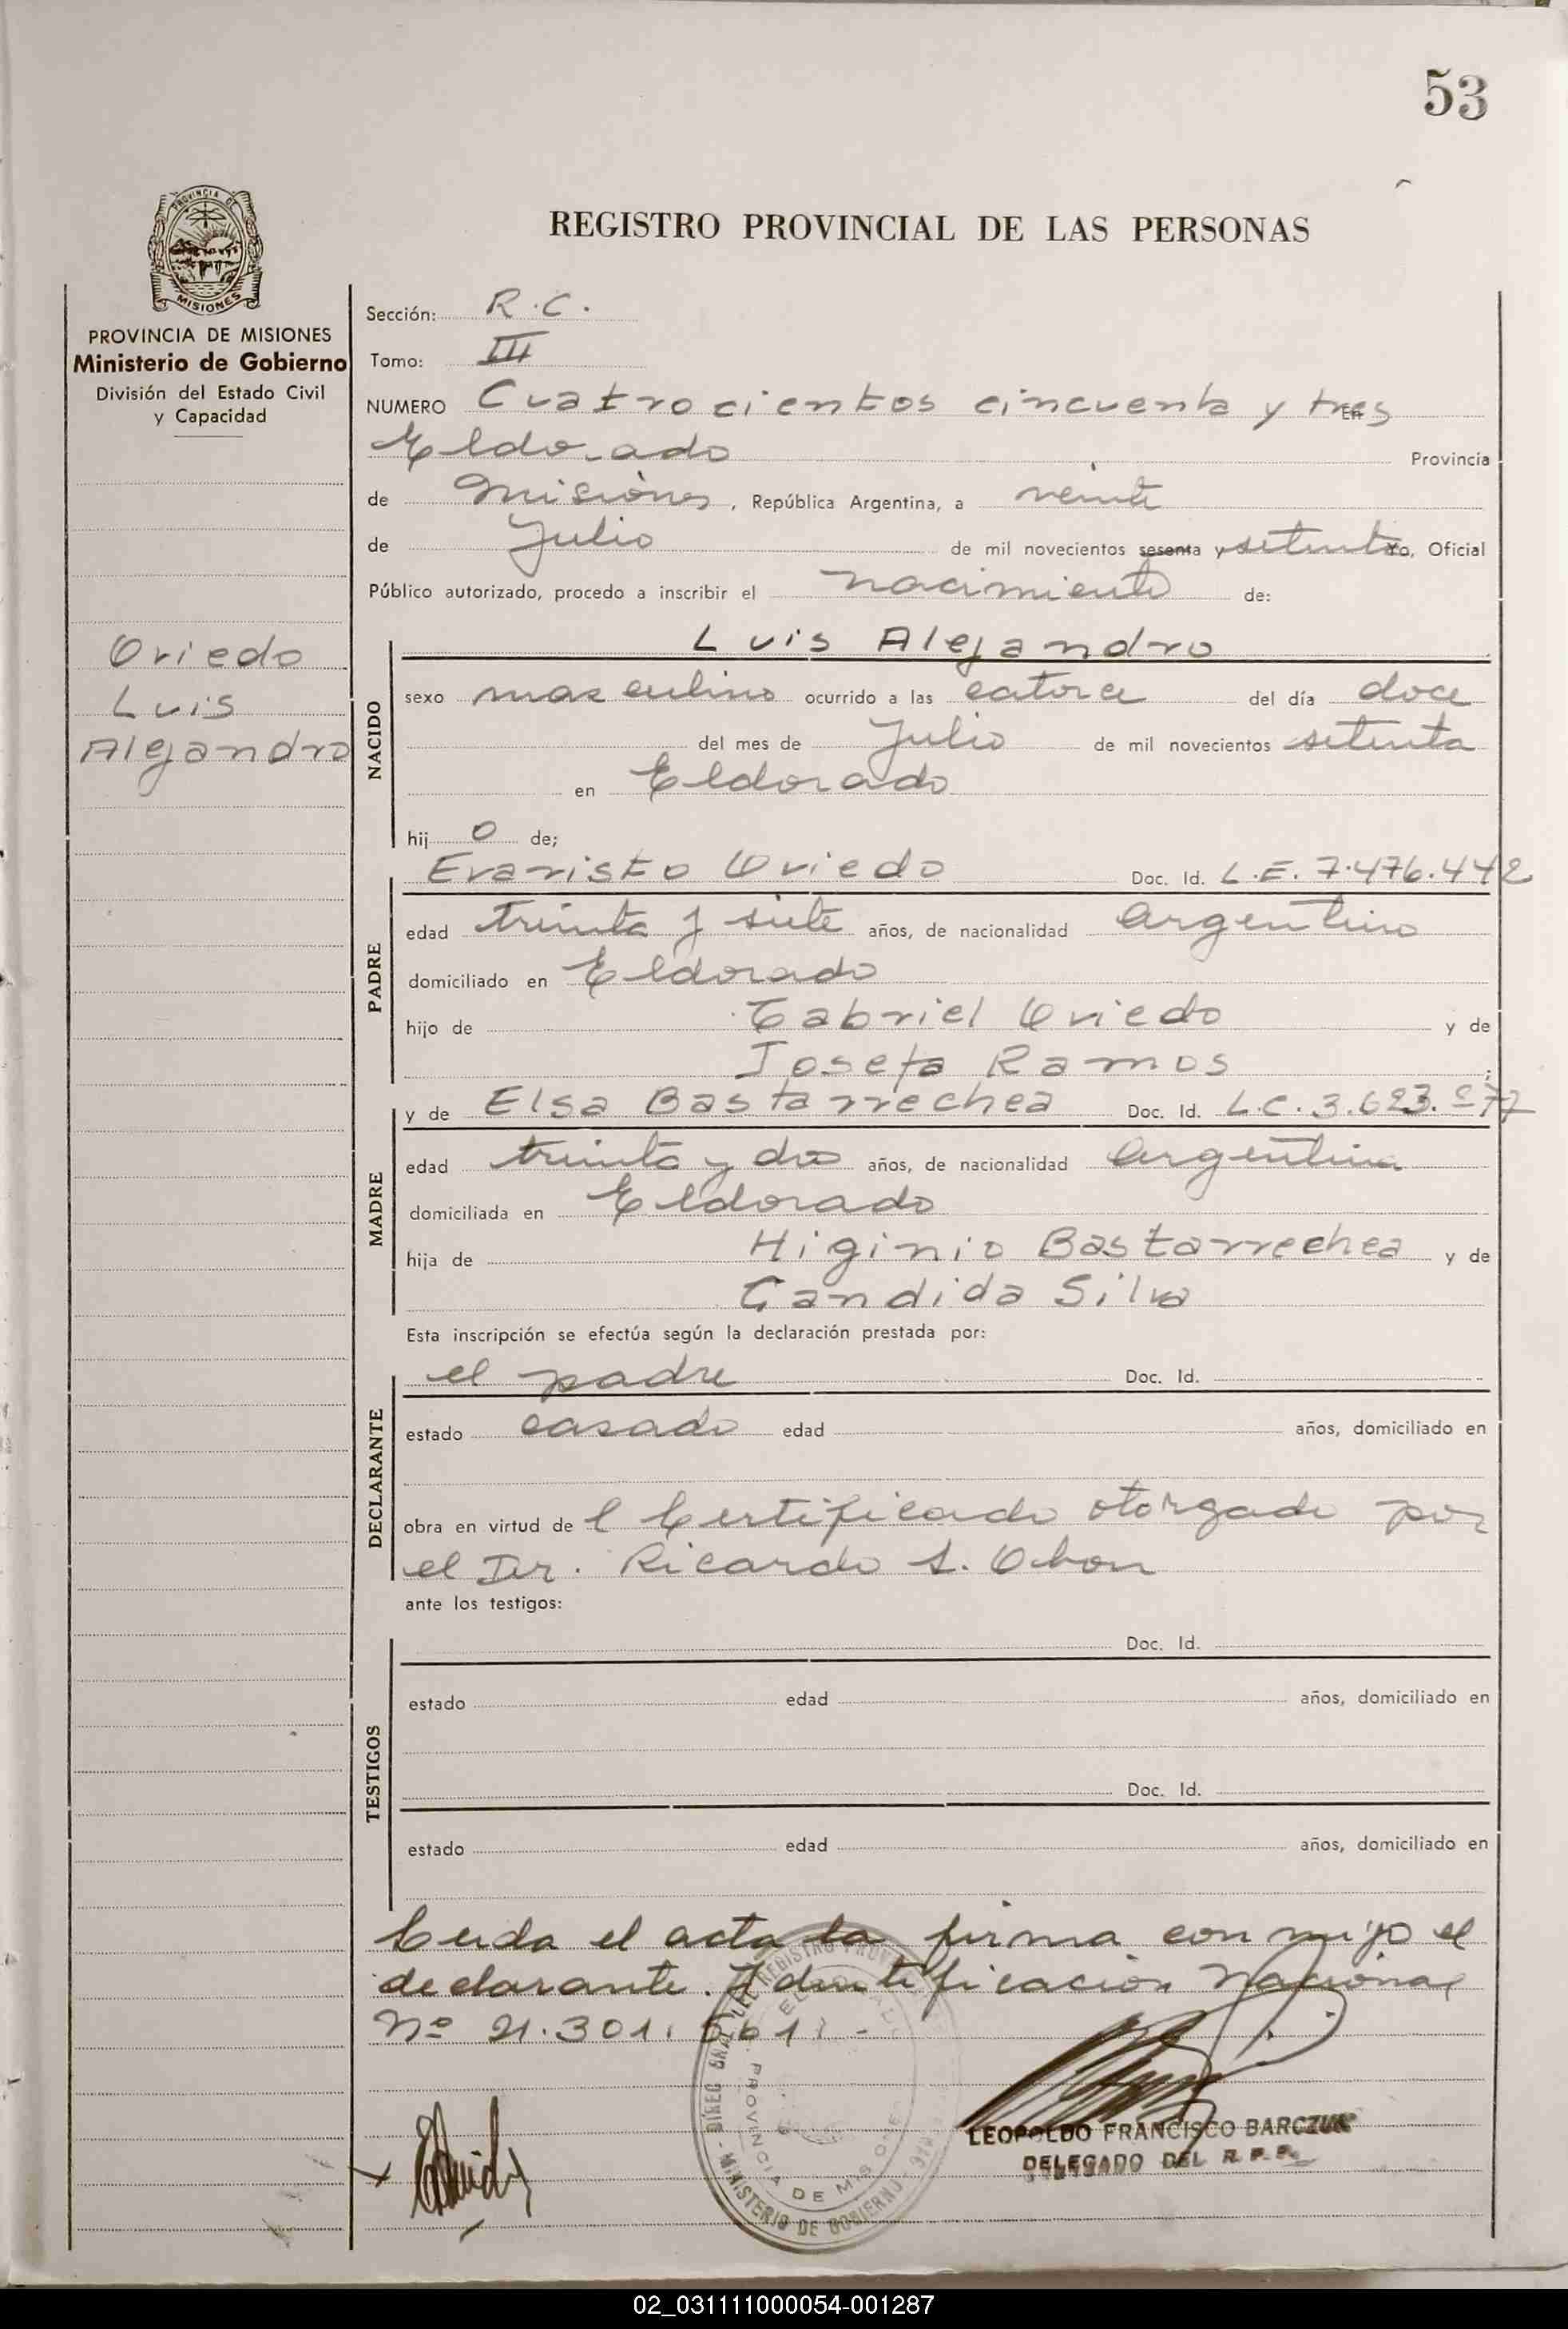 53
REGISTRO PROVINCIAL DE LAS PERSONAS
PROVINCIA DE
MISIONES
PROVINCIA DE MISIONES
Ministerio de Gobierno
División del Estado Civil
y Capacidad
Oviedo
Luis
Alejandro
Sección: R.C.
Tomo: III
NUMERO Cuatrocientos cincuenta y tres En
Eldorado Provincia
de Misiones, República Argentina, a veinte
de Julio de mil novecientos sesenta y setenta Yo, Oficial
Público autorizado, procedo a inscribir el nacimiento de:
NACIDO
Luis Alejandro
sexo masculino ocurrido a las catorce del día doce
del mes de Julio de mil novecientos setenta
en Eldorado
hij o de;
PADRE
Evaristo Oviedo Doc. Id. L.E. 7.476.442
edad treinta y siete años, de nacionalidad argentino
domiciliado en Eldorado
hijo de Gabriel Oviedo y de
Josefa Ramos ;
MADRE
y de Elsa Bastarrechea Doc. Id. L.C. 3.623.
edad treinta y dos años, de nacionalidad argentina
domiciliada en Eldorado
hija de Higinio Bastarrechea y de
Candida Silva
Esta inscripción se efectúa según la declaración prestada por:
DECLARANTE
el padre Doc. Id.
estado casado edad años, domiciliado en
obra en virtud de l Certificado otorgado por
el Dr. Ricardo S. Obon
ante los testigos:
TESTIGOS
Doc. Id.
estado edad años, domiciliado en
Doc. Id.
estado edad años, domiciliado en
Leida el acta la firma con migo el
declarante. Identificación Nacional
Nº 21.301.561. -
MINISTERIO DE GOBIERNO
PROVINCIA DE MISIONES
LEOPOLDO FRANCISCO BARCZUK
DELEGADO DEL R. P. P.
02_031111000054-001287